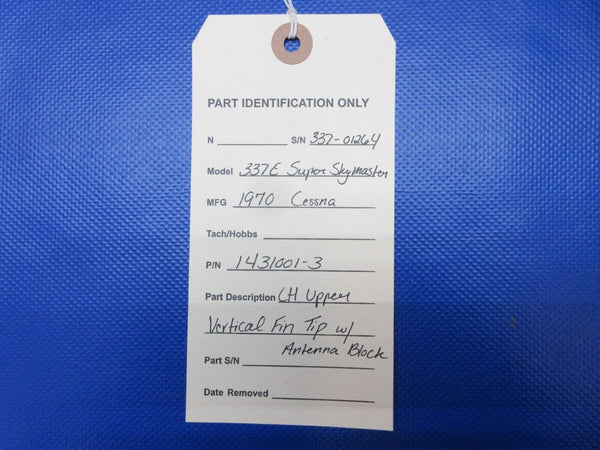 PART IDENTIFICATION ONLY
N S/N 337-01264
Model 337E Super Skymaster
MFG 1970 Cessna
Tach/Hobbs
P/N 1431001-3
Part Description LH Upper
Vertical Fin Tip w/
Antenna Block
Part S/N
Date Removed